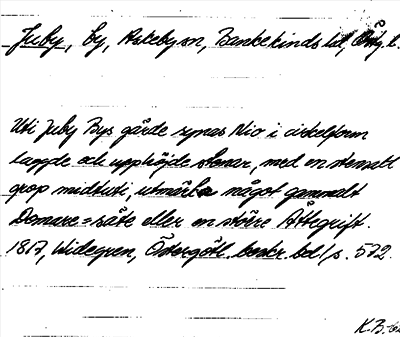 Juby, by, Askeby sn, Bankekinds hd, Ög. l.
Uti Juby Bys gärde synas Nio i cirkelform
lagde och upphöjde stenar, med en stensatt
grop midtuti, utmärka något gammalt
Domare=säte eller en större Ättegrift.
1817, Widegren, Östergötl. beskr. bd. 1 s. 572.
K.B.